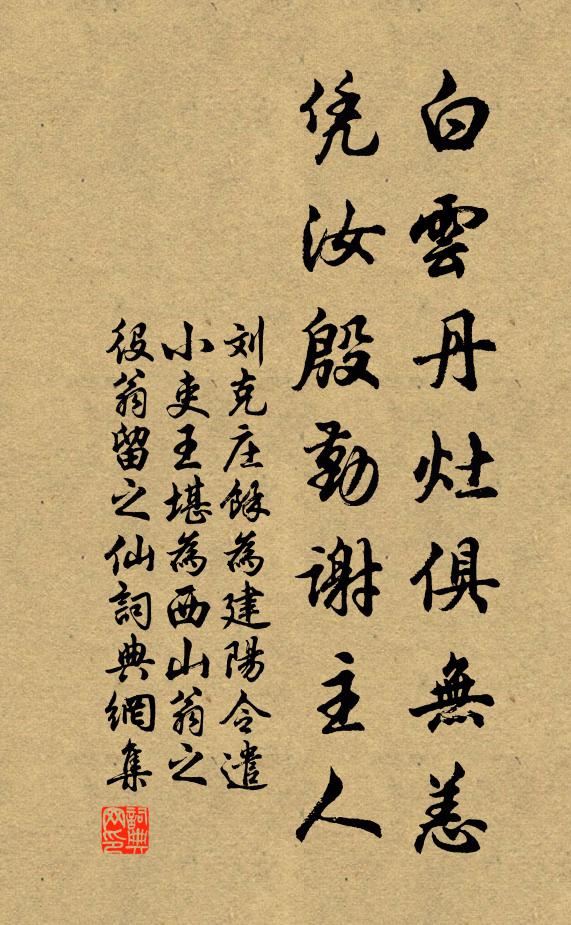 白雲丹灶俱無恙
凭汝殷勤謝主人
刘克庄餘為建陽令遣
小吏王堪為西山翁之
役翁留之仙詞典網集
詞典网印